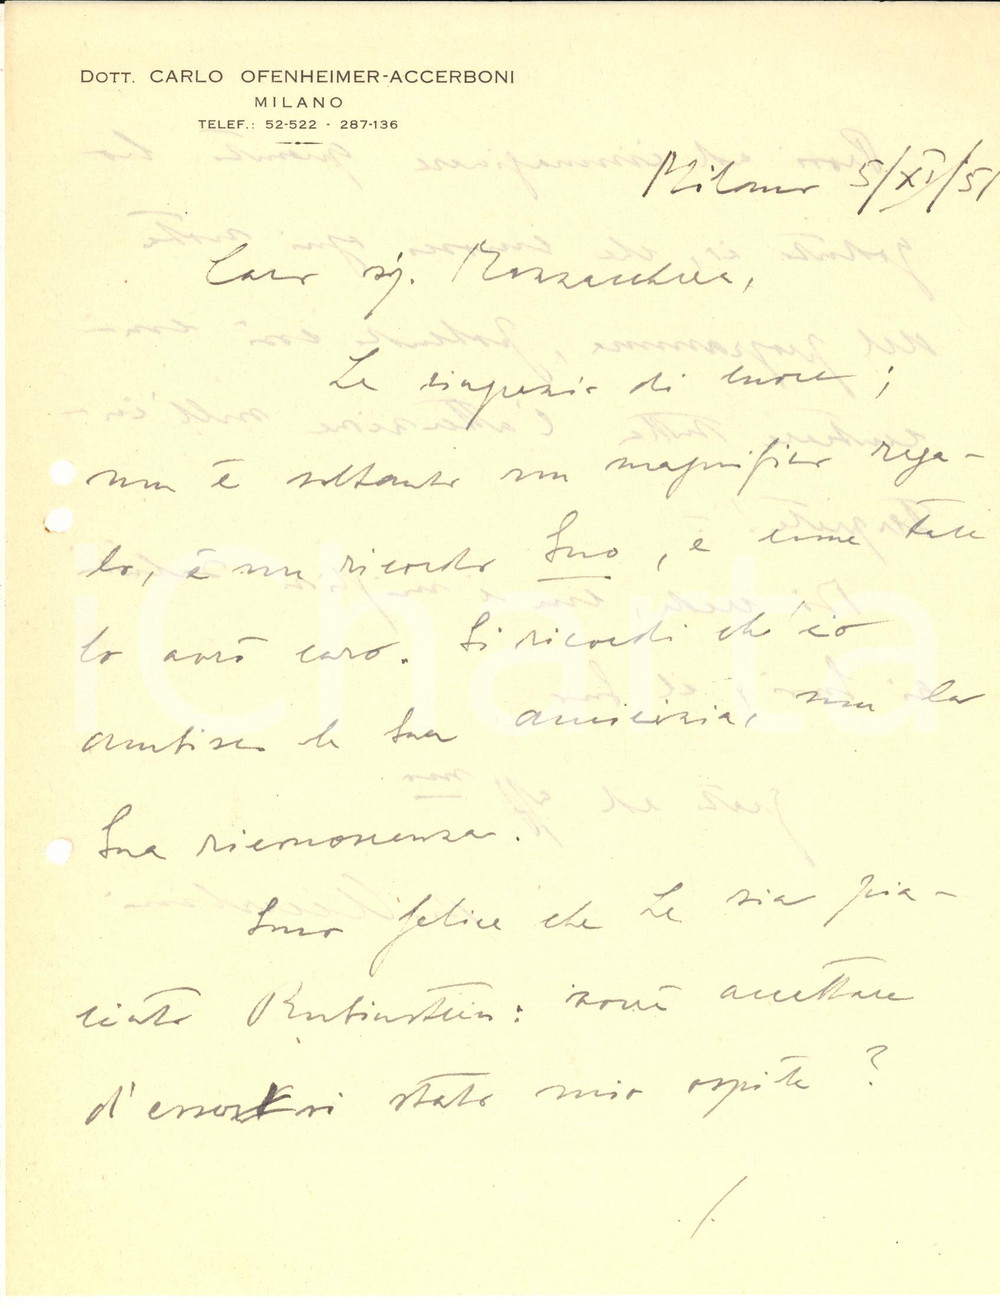 DOTT. CARLO OFENHEIMER-ACCERBONI
MILANO
TELEF.: 52-522 - 287-136
Milano 5/XI/51
Caro sig. Mazzucchera,
Le ringrazio di cuore;
non è soltanto un magnifico rega-
lo, è un ricordo Suo, e come tale
lo avrò caro. Si ricordi ch'io
ambisco la Sua amicizia, non la
Sua riconoscenza.
Sono felice che Le sia pia-
ciuto Rubinstein: vorrà accettare
d'esservi stato mio ospite?
./.
iCharta